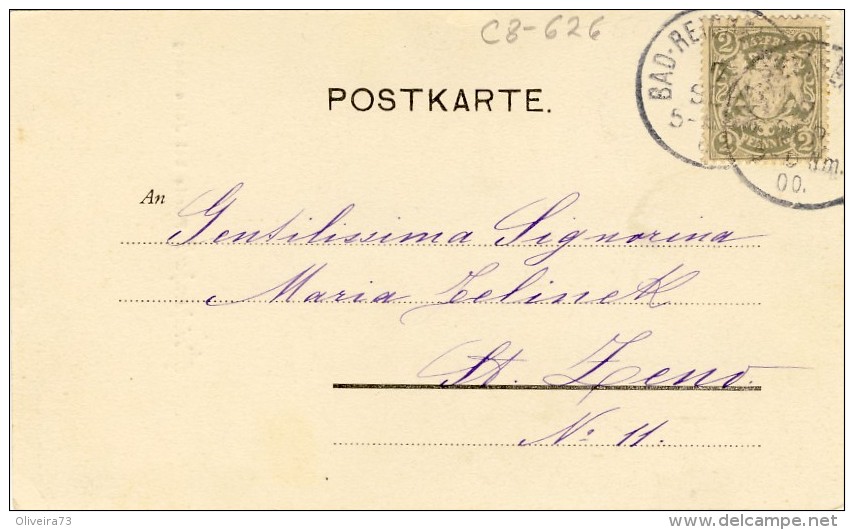 C8-626
POSTKARTE.
BAD-RE
2 2
2 2
00.
An Gentilissima Signorina
Maria Zelinek
St. Zeno.
No 11.
Oliveira73
www.delcampe.net